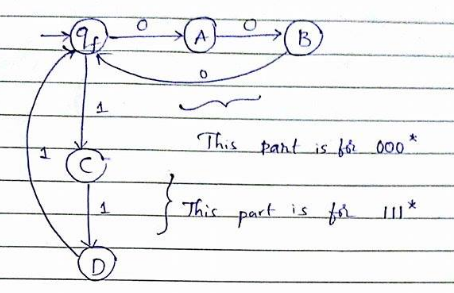 qf 0 A 0 B
0
1
This part is for 000*
1 C
1 This part is for 111*
D